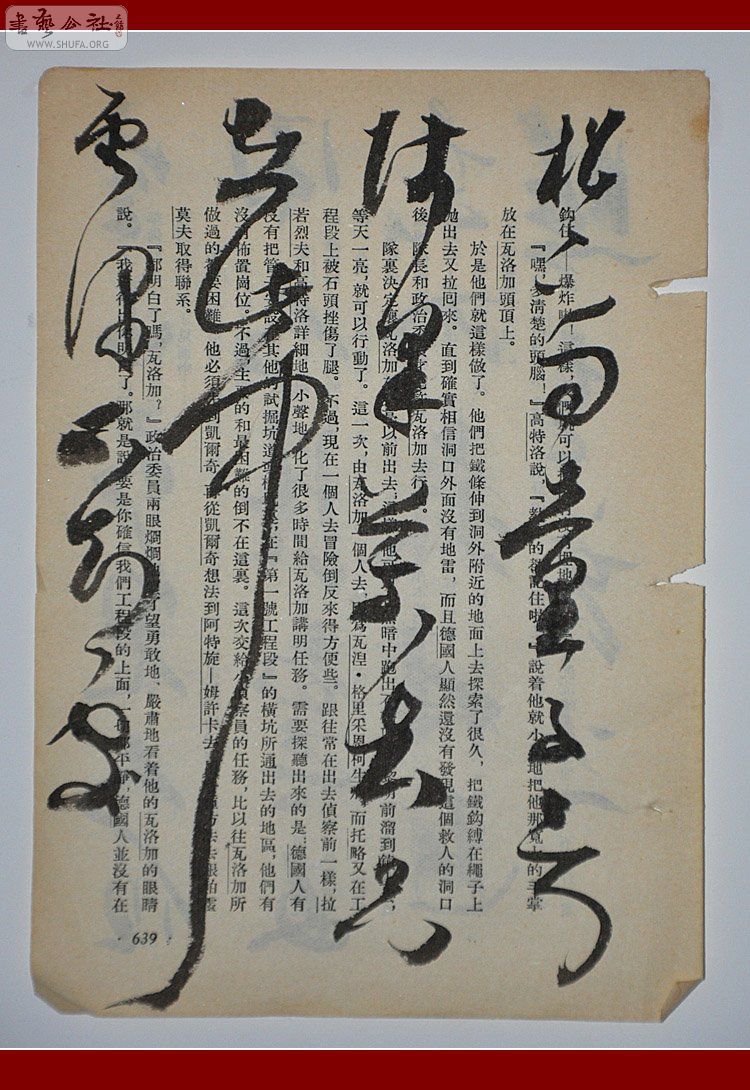 松下問童子言
師采藥去只
在此山中
雲深不知處
鈎住——爆炸啦！這樣，
『嘿，多清楚的頭腦！』高特洛說，的都記住啦。』說着他就小地把他那寬大的手掌
放在瓦洛加頭頂上。
於是他們就這樣做了。他們把鐵條伸到洞外附近的地面上去探索了很久，把鐵鈎縛在繩子上
拋出去又拉囘來。直到確實相信洞口外面沒有地雷，而且德國人顯然還沒有發現這個救人的洞口
後，隊長和政治委員瓦洛加去行
隊裏決定讓瓦洛加以前出去，暗中跑出前溜到
等天一亮，就可以行動了。這一次，由瓦洛加一個人去，因爲瓦涅·格里采恩柯生而托略又在工
程段上被石頭挫傷了腿。不過，現在一個人去冒險倒反來得方便些。跟往常在出去偵察前一樣，拉
若烈夫和高特洛詳細地、小聲地化了很多時間給瓦洛加講明任務。需要探聽出來的是：德國人有
沒有把管其他的試掘坑道在『第一號工程段』的橫坑所通出去的地區，他們有
沒有佈置崗位。不過，主要的和最困難的倒不在這裏。這次交給小偵察員的任務，比以往瓦洛加所
做過的都要困難。他必須走到凱爾奇，再從凱爾奇想法到阿特旋—姆許卡去方去跟柏雲
莫夫取得聯系。
『都明白了嗎，瓦洛加？』政治委員兩眼爛爛地望勇敢地、嚴肅地看着他的瓦洛加的眼睛
說。『我那就是說，要是你確信我們工程段的上面，一切都平靜，德國人並沒有在
·639·
書藝公社
WWW.SHUFA.ORG